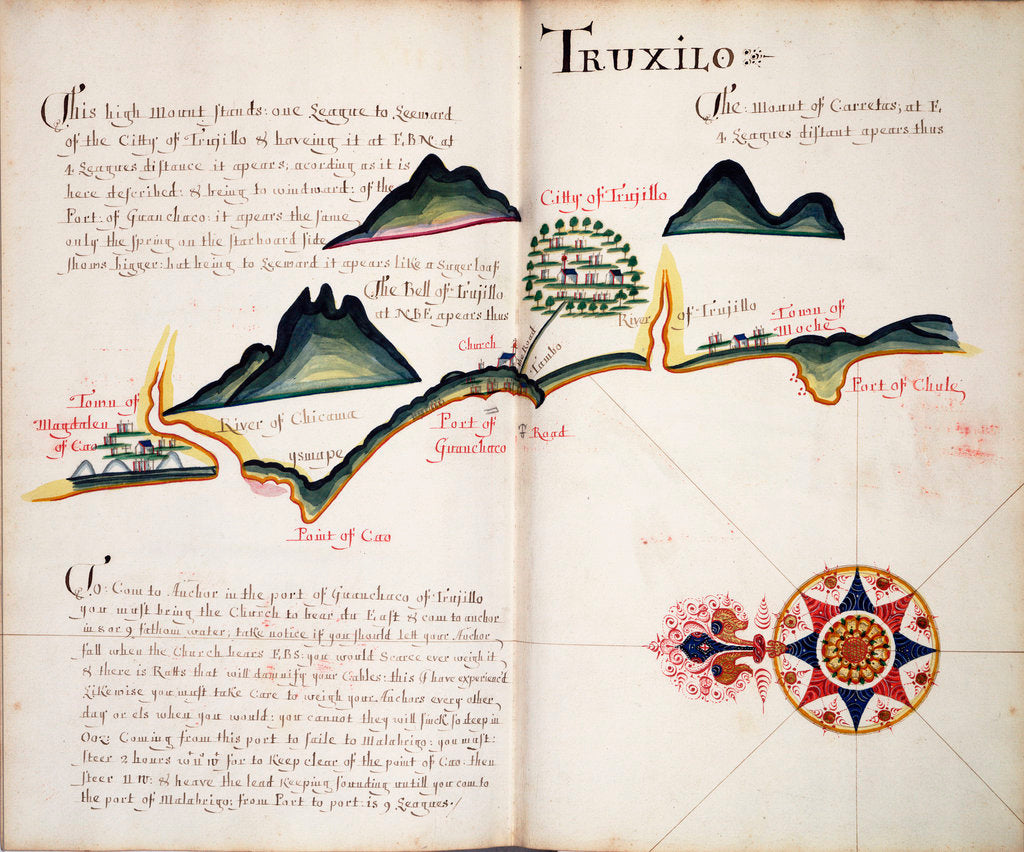 TRUXILO
This high Mount stands: one League to Leeward
of the Citty of Trujillo & haveing it at E.B.N. at
4 Leagues distance it apears; acording as it is
here described: & being to windward: of the
Port: of Guanchaco: it apears the same
only the spring on the starboard side
shows bigger: but being to Leeward it apears like a Suger loaf
The Bell of Trujillo
at N.B.E. apears thus
The: Mount of Carretas; at E.
4 Leagues distant apears thus
Citty of Trujillo
River of Trujillo
Town of
Moche
Port of Chule
Church
the Road
Tambo
Port of
Guanchaco
Road
Town of
Magdalen
of Cao
River of Chicama
ysmape
Point of Cao
To: Com to Anchor in the port of Guanchaco of Trujillo
you must bring the Church to bear du East & com to anchor
in 8 or 9 fathom water; take notice if you should lett your Anchor
fall when the Church bears E.B.S: you would Scarce ever weigh it
& there is Ratts that will damnify your Cables: this I have experienc'd
Likewise you must take Care to weigh your Anchors every other
day or els when you would: you cannot they will sinck so deep in
Ooz: Coming from this port to saile to Malabrigo: you must:
steer 2 hours for to keep clear of the point of Cao: then
steer & heave the lead keeping sounding untill you com to
the port of Malabrigo; from Port to port is 9 Leagues·/